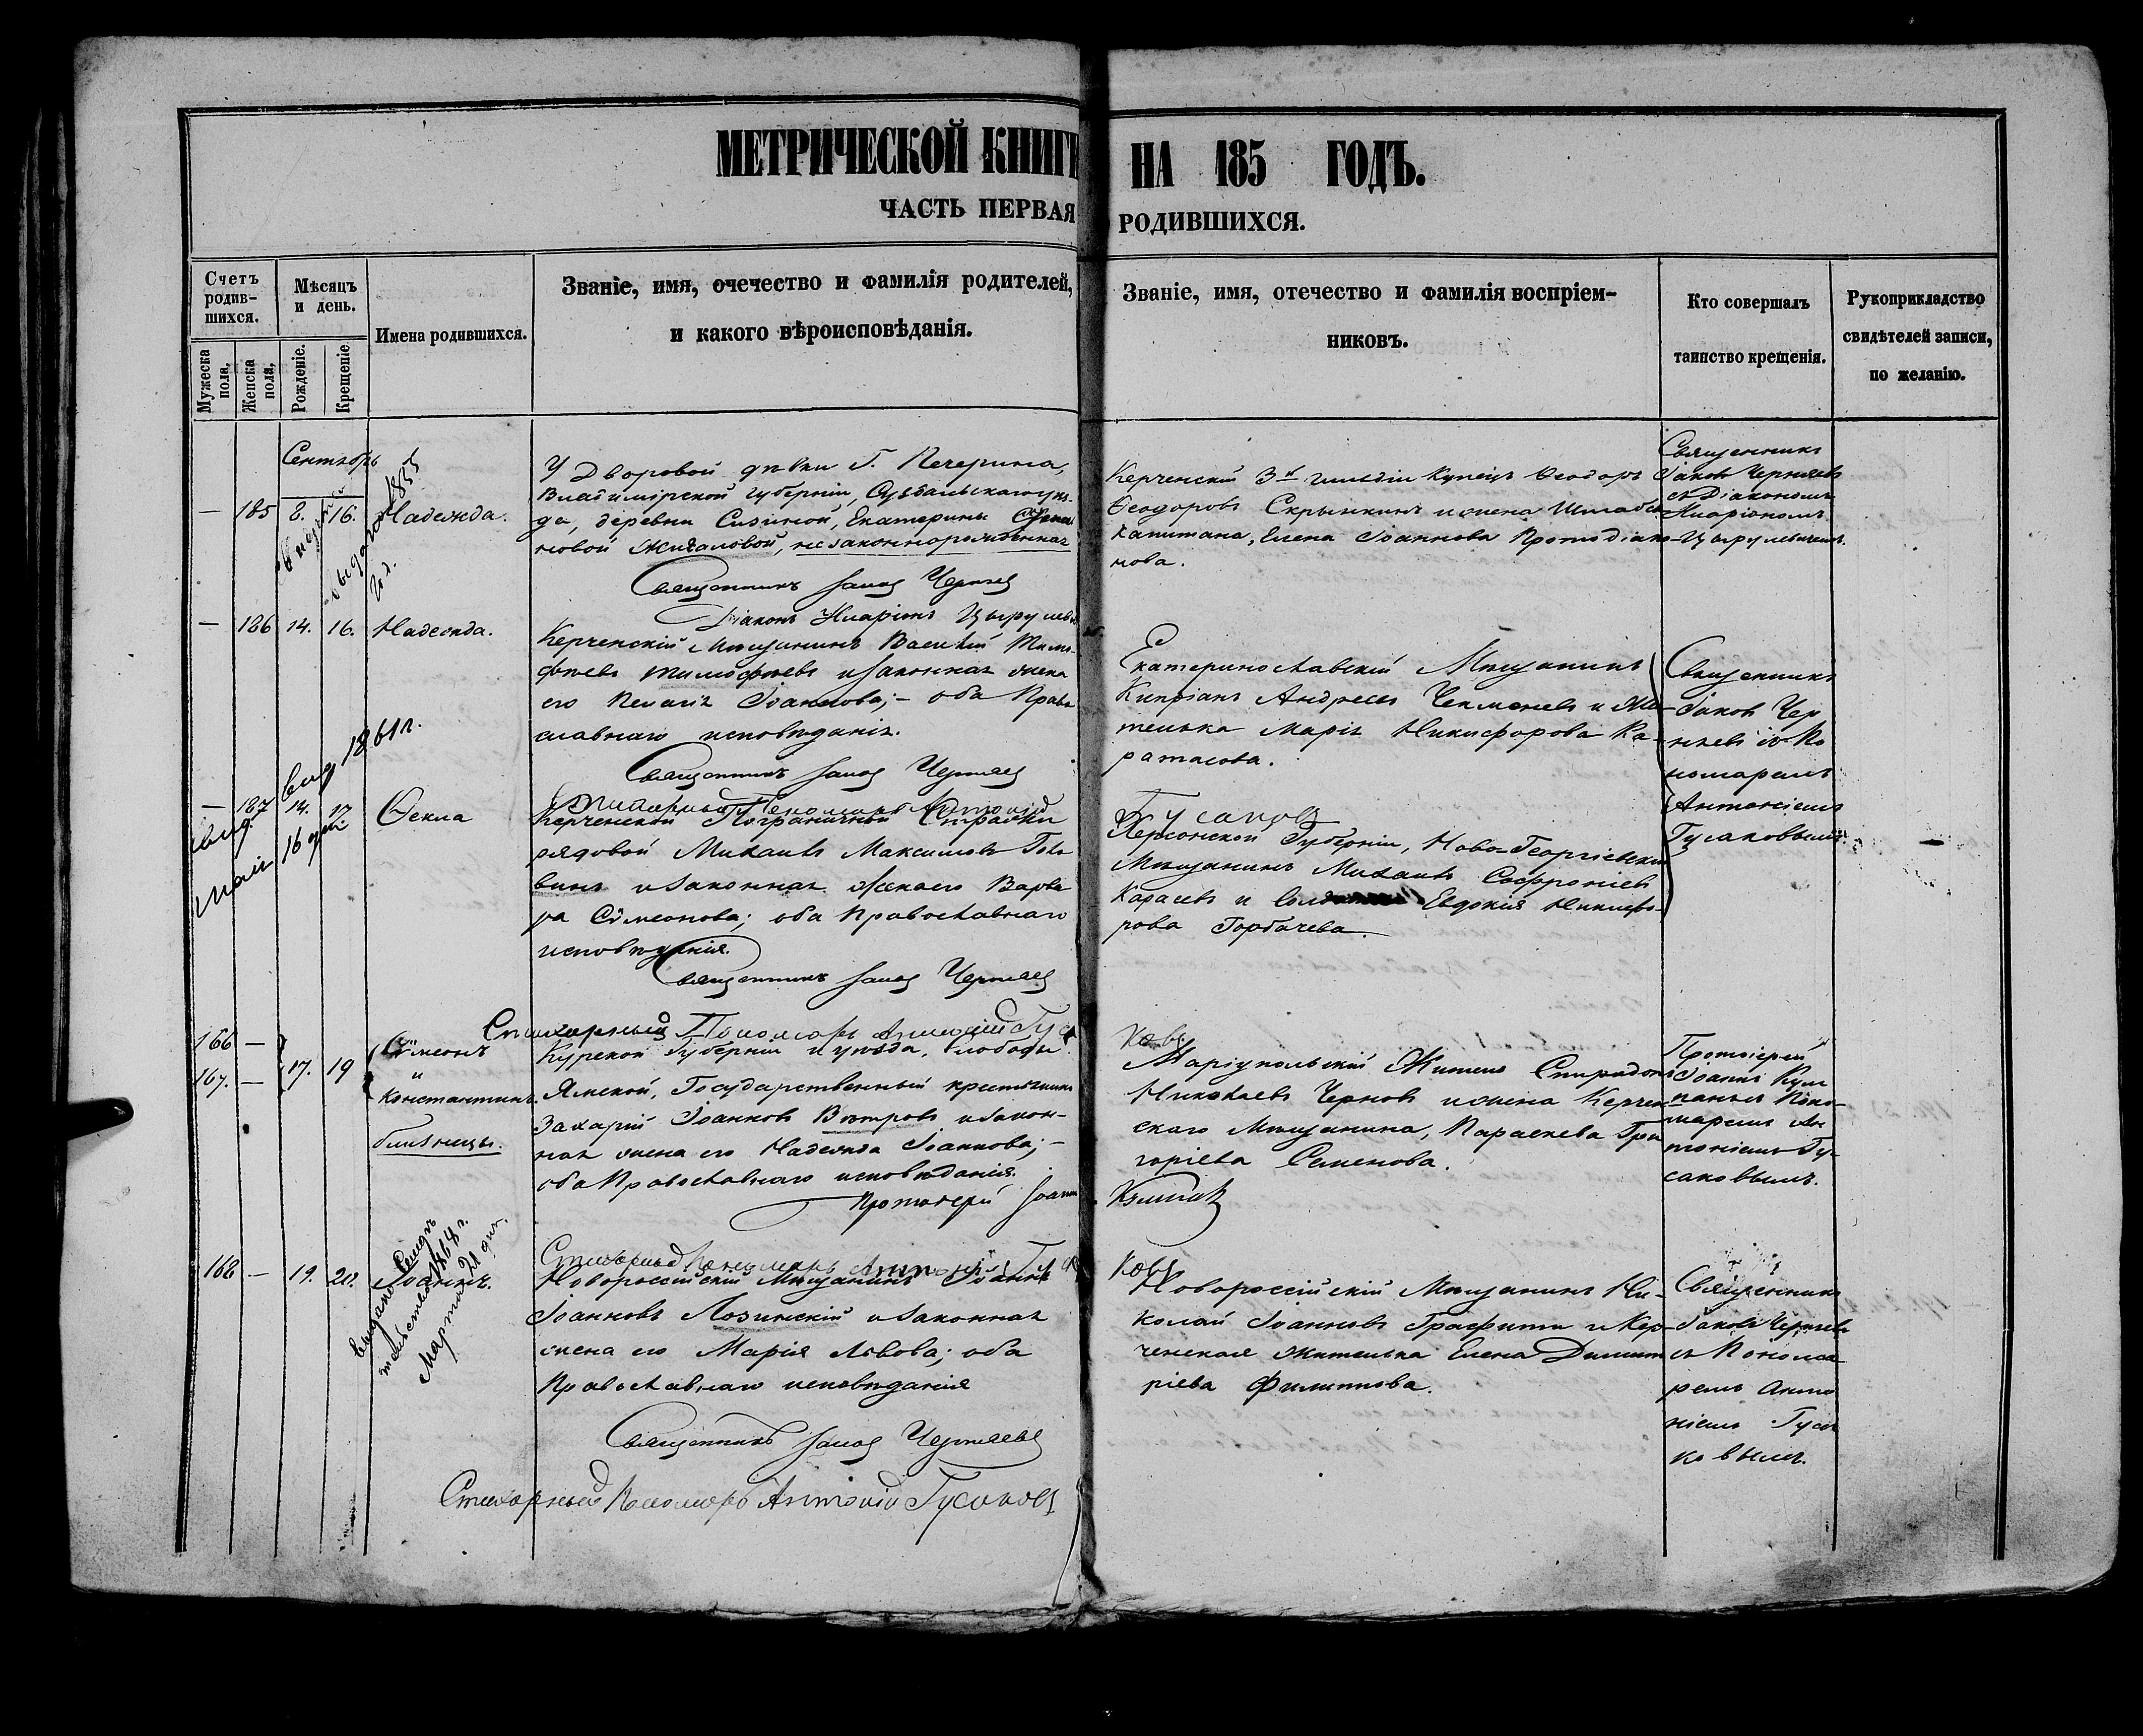 МЕТРИЧЕСКОЙ КНИГИ НА 185 ГОДЪ.
ЧАСТЬ ПЕРВАЯ РОДИВШИХСЯ.
Счетъ родив-
шихся.
Мужеска пола,
Женска пола,
Мѣсяцъ
и день.
Рожденіе.
Крещеніе
Имена родившихся.
Званіе, имя, очечество и фамилія родителей,
и какого вѣроисповѣданія.
Званіе, имя, отечество и фамилія воспріем-
никовъ.
Кто совершалъ
таинство крещенія.
Рукоприкладство
свидѣтелей записи,
по желанію.
Сентябрь
— 185 8. 16. Надежда.
У Дворовой дѣвки Г. Печерина,
Владимірской губерніи, Суздальскаго уѣз-
да, деревни Сизиной, Екатерины
новой Жигаловой, незаконнорожденная
Священникъ Іаковъ Черняевъ
Діаконъ Иларіонъ
Керченскій 3й гильдіи Купецъ Ѳеодоръ
Ѳеодоровъ Скрынкинъ и жена Штабсъ
Капитана, Елена Іоаннова Протодіако-
нова.
Священникъ
Іаковъ Черняевъ
съ Діакономъ
Иларіономъ
— 186 14. 16. Надежда.
Керченскій Мѣщанинъ Василій Тимо-
фѣевъ Тимофѣевъ и законная жена
его Пелагія Іоаннова; — оба Право
славнаго исповѣданія.
Священникъ Іаковъ Черняевъ
Стихарный Пономарь Антоній
Гусаковъ
Екатеринославскій Мѣщанинъ
Кипріанъ Андреевъ Чекменевъ и Жи-
телька Марія Никифорова Ка-
ратасова.
Священникъ
Іаковъ Чер
няевъ съ По
номаремъ
Антоніемъ
Гусаковымъ
— 187 14. 17. Ѳекла
выд. 1861 г.
Маія 16 дня
Керченской Пограничной Стражи
рядовой Михаилъ Максимовъ
винъ и законная жена его Варва
ра Сѵмеонова; оба Православнаго
исповѣданія.
Священникъ Іаковъ Черняевъ
Стихарный Пономарь Антоній Гуса
ковъ
Херсонской Губерніи, Ново-Георгіевскій
Мѣщанинъ Михаилъ Софроніевъ
Карасевъ и Евдокія Никифо-
рова Горбачева.
166 —
167. —
17. 19
Сѵмеонъ
и
Константинъ.
близнецы.
Курской Губерніи и уѣзда, Слободы
Ямской, Государственный крестьянинъ
Захарій Іоанновъ Вѣтровъ и закон-
ная жена его Надежда Іоаннова; —
оба Православнаго исповѣданія.
Протоіерей Іоаннъ
Стихарный Пономарь Антоній Гуса
ковъ
Маріупольскій Житель Спиридонъ
Николаевъ Черновъ и жена Керчен-
скаго Мѣщанина, Параскева Гри
горіева Семенова.
Протоіерей
Іоаннъ
съ Поно-
маремъ Ан
тоніемъ Гу-
саковымъ.
168 — 19. 20. Іоаннъ.
выдано Свидѣ
тельство 1868 г.
Марта 21 дня.
Новороссійскій Мѣщанинъ Іоаннъ
Іоанновъ Лозинскій и законная
жена его Марія Львова; оба
Православнаго исповѣданія
Священникъ Іаковъ Черняевъ
Стихарный Пономарь Антоній Гусаковъ
Новороссійскій Мѣщанинъ Ни-
колай Іоанновъ Графити и Кер-
ченская жителька Елена Димит
ріева Филиппова.
Священникъ
Іаковъ Черняевъ
съ Понома
ремъ Анто
ніемъ Гуса
ковымъ.